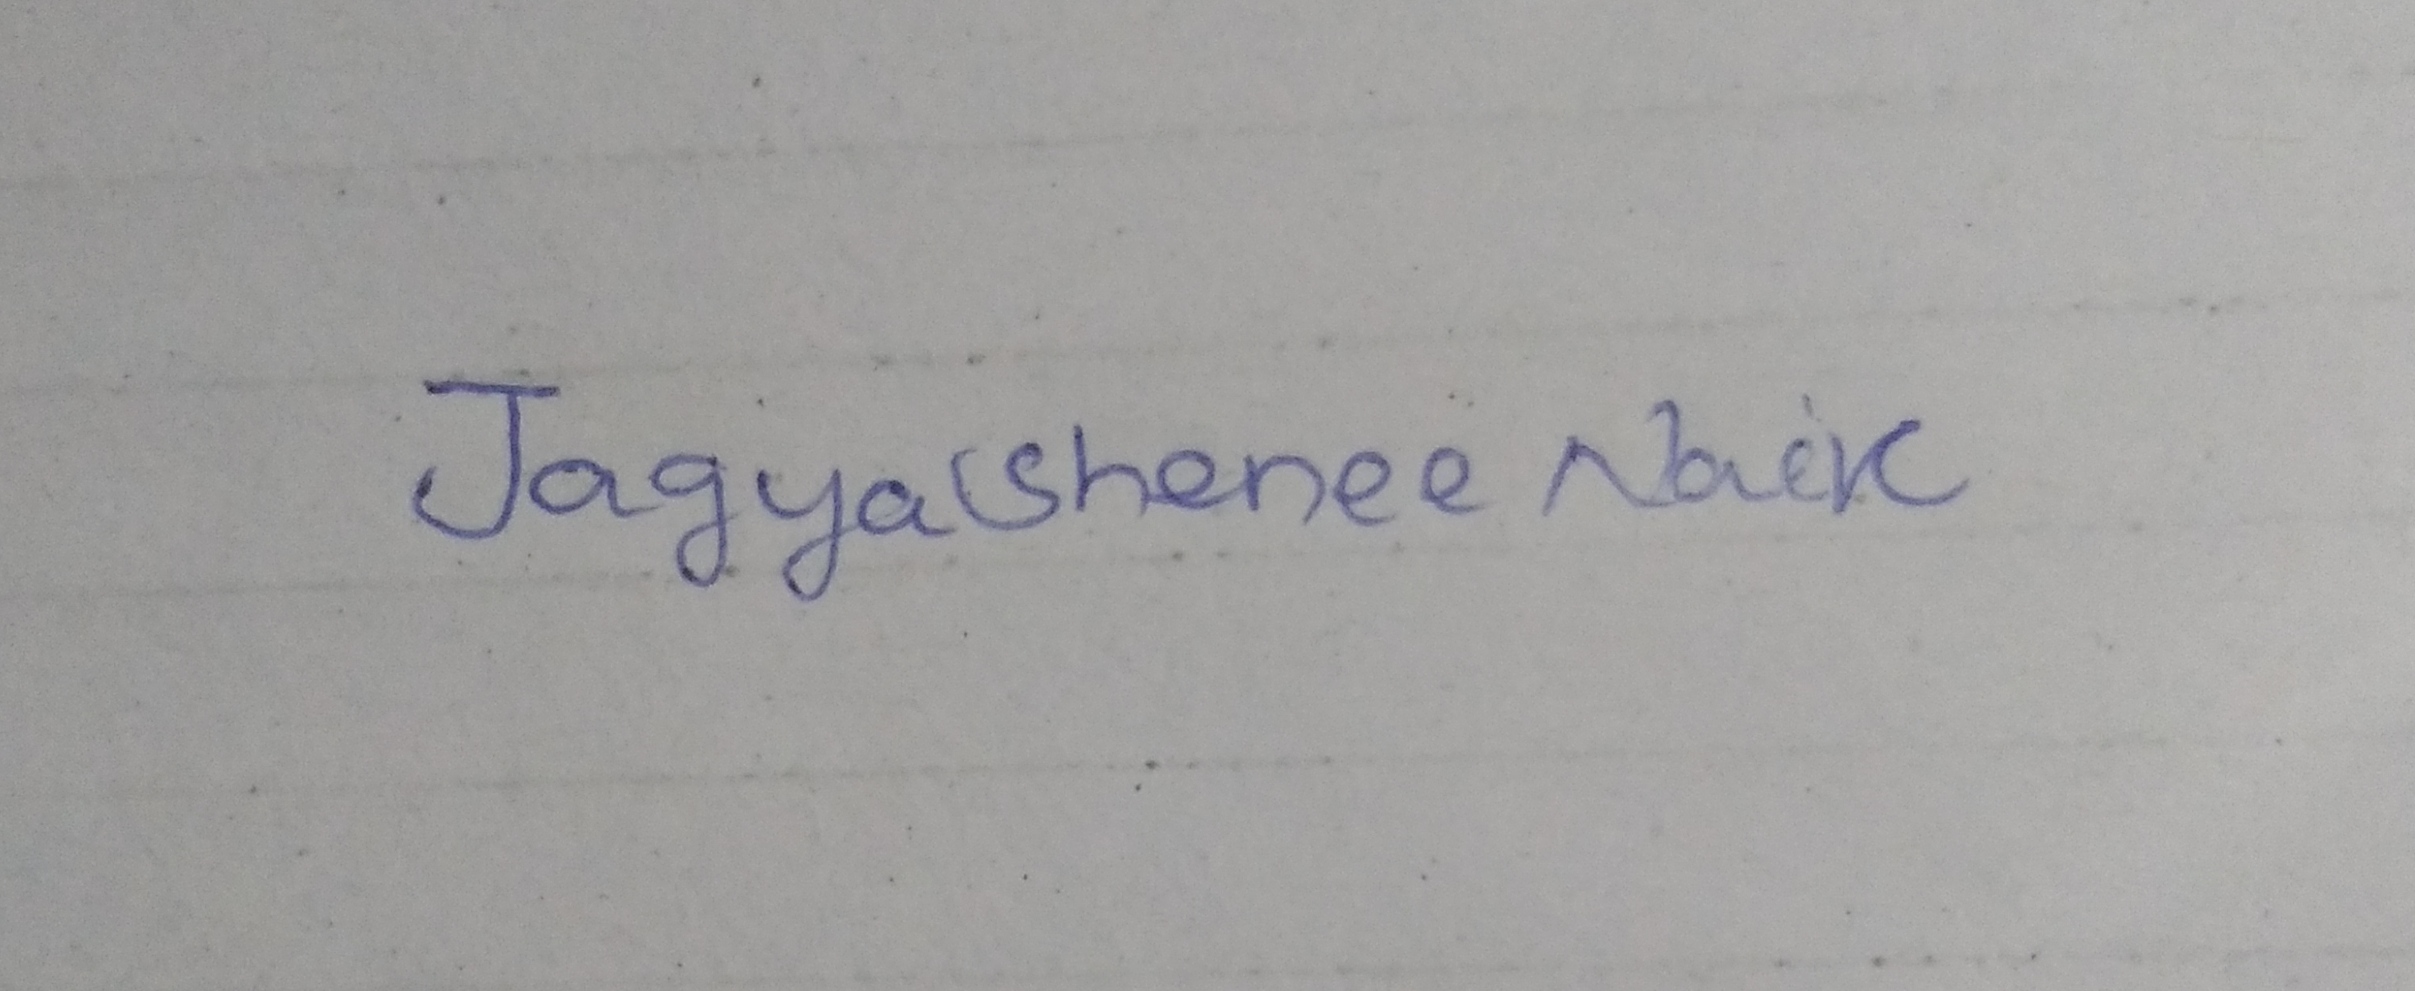 Jagyashenee Naik